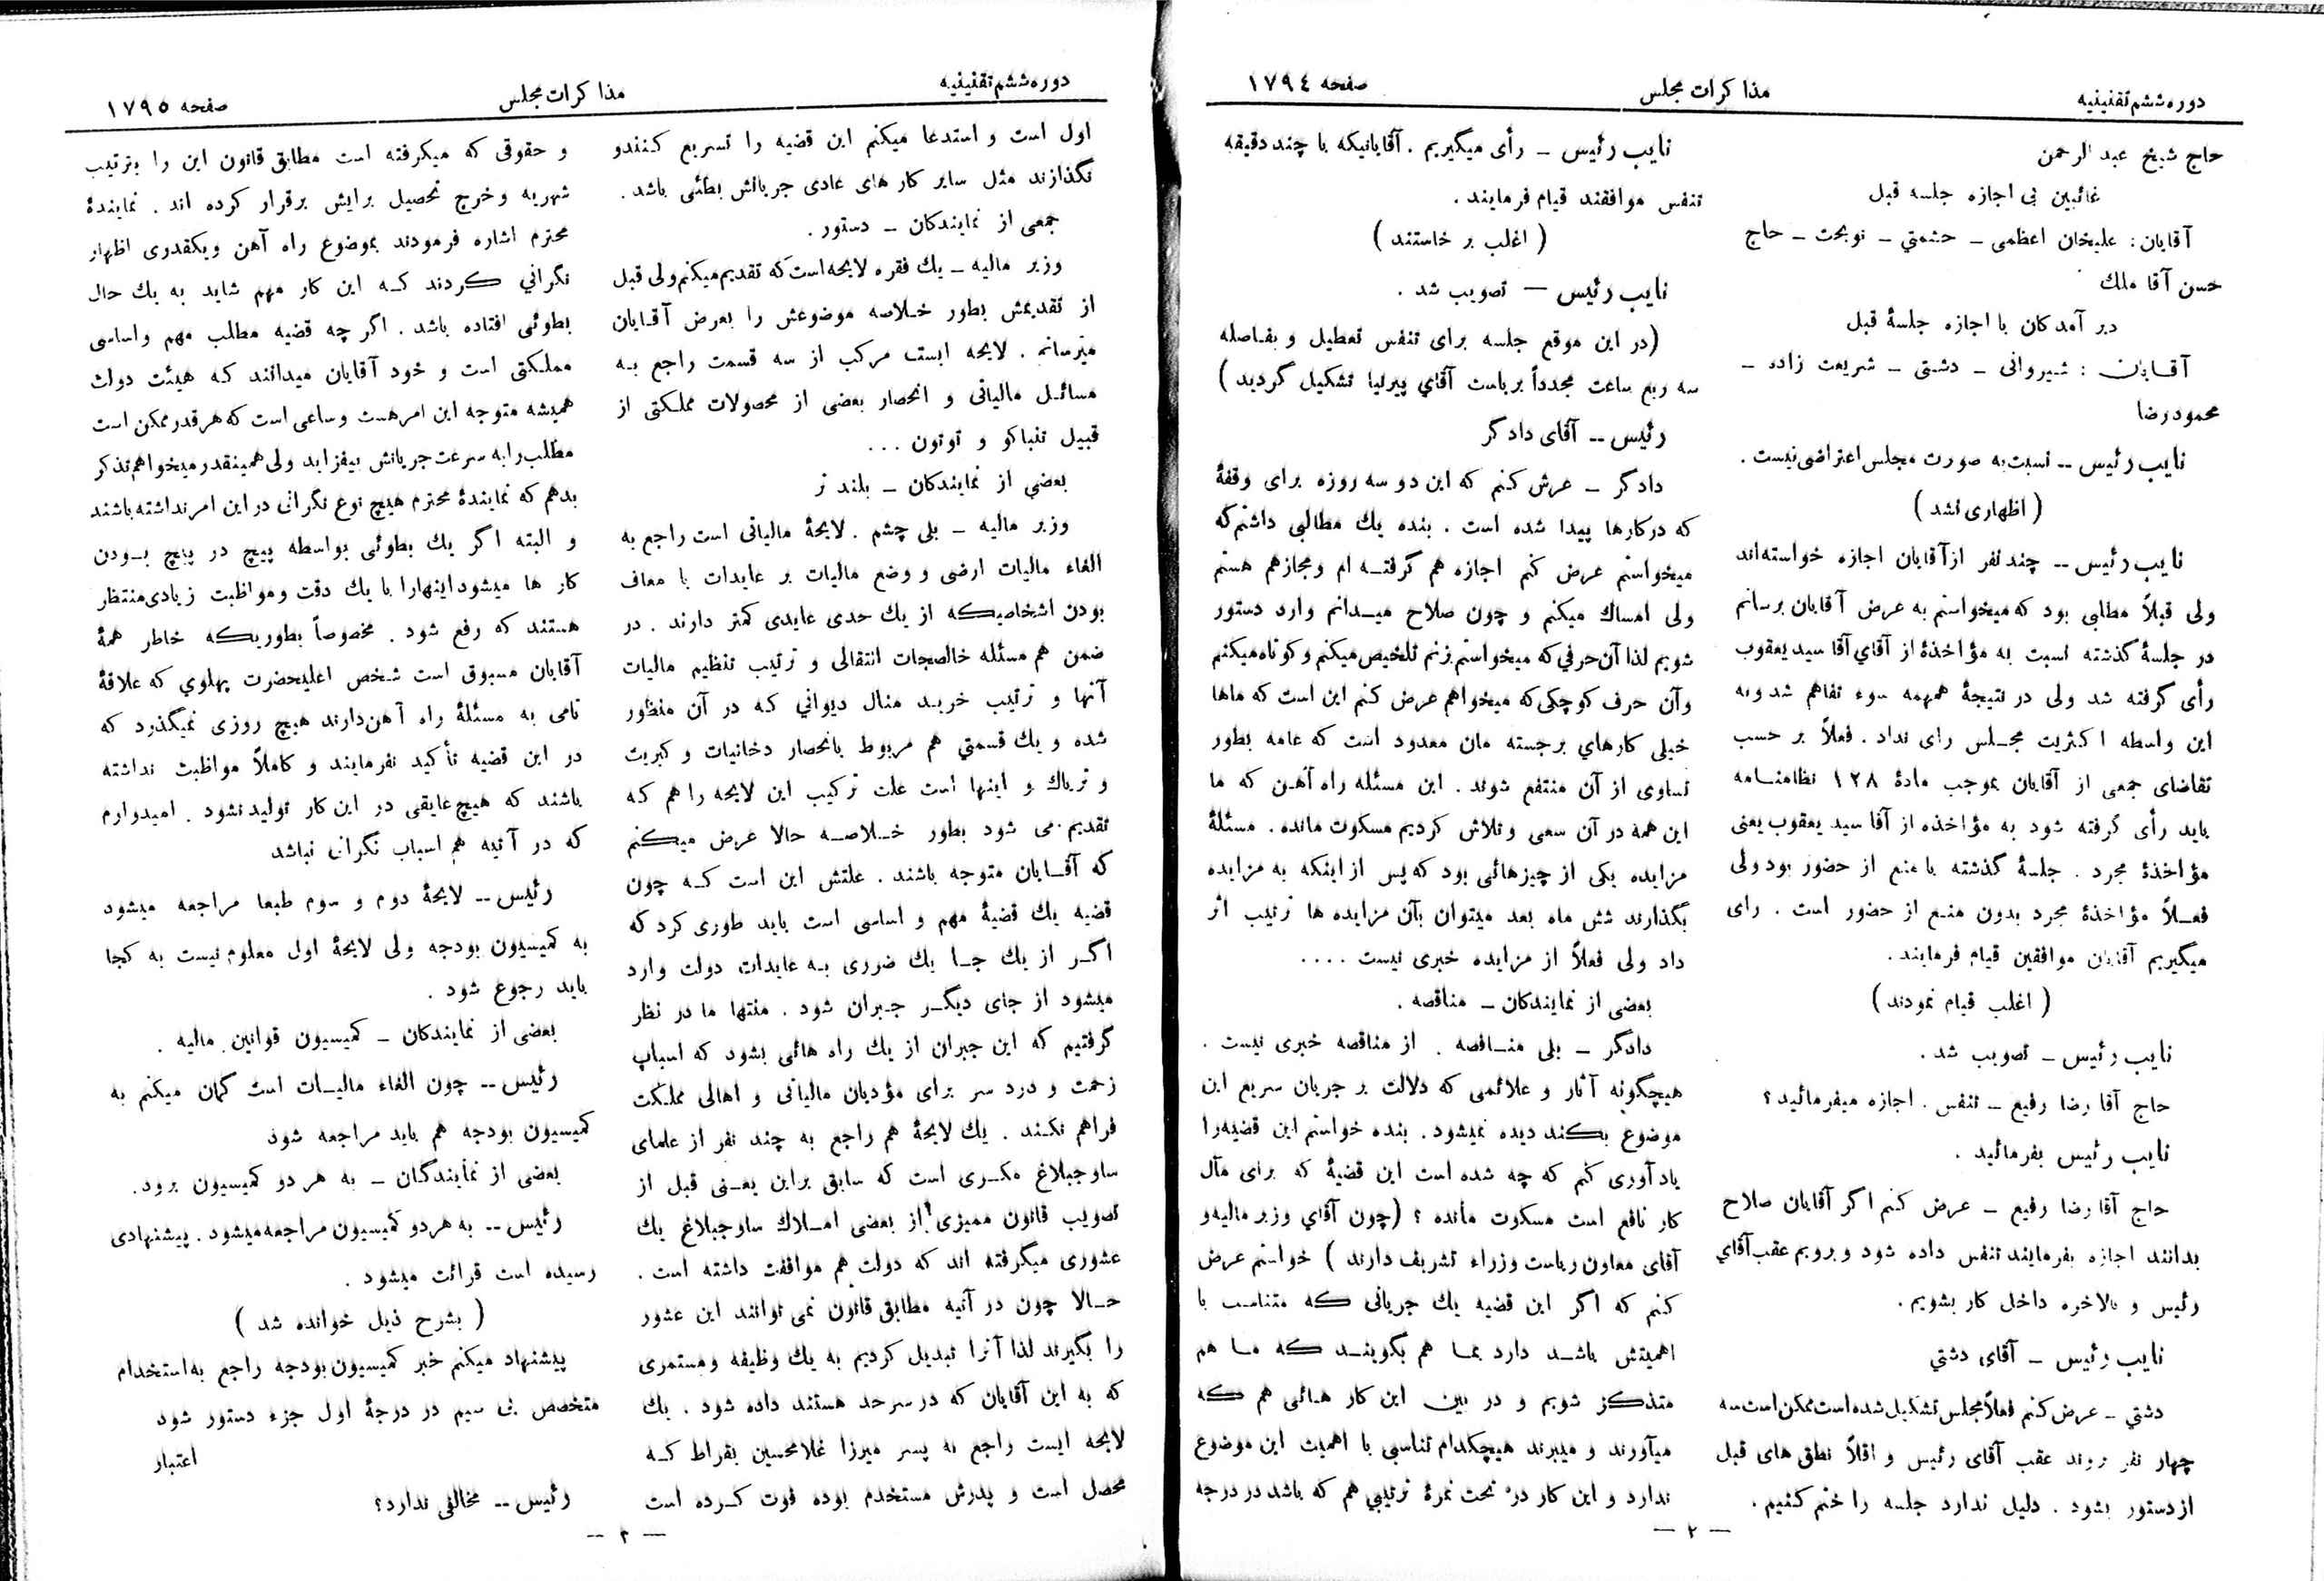 دوره ششم تقنینیه
مذاکرات مجلس
صفحه ۱۷۹۴
حاج شیخ عبدالرحمن
غائبین بی اجازه جلسه قبل
آقایان: علیخان اعظمی – حشمتي – نوبخت – حاج
حسن آقا ملك
دیر آمدکان با اجازه جلسهٔ قبل
آقایان : شیروانی – دشتی – شریعت زاده –
محمود رضا
نایب رئیس – نسبت به صورت مجلس اعتراضی نیست .
( اظهاری نشد )
نایب رئیس – چند نفر از آقایان اجازه خواسته‌اند
ولی قبلاً مطلبی بود که میخواستم به عرض آقایان برسانم
در جلسهٔ گذشته نسبت به مؤاخذهٔ از آقاي آقا سید یعقوب
رأی گرفته شد ولی در نتیجهٔ همهمه سوء تفاهم شد و به
این واسطه اکثریت مجلس رای نداد . فعلاً بر حسب
تقاضای جمعی از آقایان بموجب مادهٔ ۱۲۸ نظامنامه
باید رأی گرفته شود به مؤاخذه از آقا سید یعقوب یعنی
مؤاخذهٔ مجرد . جلسهٔ گذشته با منع از حضور بود ولی
فعلاً مؤاخذهٔ مجرد بدون منع از حضور است . رای
میگیریم آقایان موافقین قیام فرمایند .
( اغلب قیام نمودند )
نایب رئیس – تصویب شد .
حاج آقا رضا رفیع – تنفس . اجازه میفرمائید ؟
نایب رئیس بفرمائید .
حاج آقا رضا رفیع – عرض کنم اگر آقایان صلاح
بدانند اجازه بفرمایند تنفس داده شود و برویم عقب آقاي
رئیس و بالاخره داخل کار بشویم .
نایب رئیس – آقای دشتي
دشتي – عرض کنم فعلاً مجلس تشکیل شده است ممکن است سه
چهار نفر بروند عقب آقای رئیس و اقلاً نطق های قبل
از دستور بشود . دلیل ندارد جلسه را ختم کنیم .
نایب رئیس – رأی میگیریم . آقایانیکه با چند دقیقه
تنفس موافقند قیام فرمایند .
( اغلب بر خاستند )
نایب رئیس — تصویب شد .
(در این موقع جلسه برای تنفس تعطیل و بفاصله
سه ربع ساعت مجدداً بریاست آقاي پیرنیا تشکیل گردید )
رئیس – آقای دادگر
دادگر – عرض کنم که این دو سه روزه برای وقفهٔ
که در کارها پیدا شده است . بنده یك مطالبی داشتم که
میخواستم عرض کنم اجازه هم گرفته ام و مجاز هم هستم
ولی امساك میکنم و چون صلاح میدانم وارد دستور
شویم لذا آن حرفي که میخواستم بزنم تلخیص میکنم و کوتاه میکنم
و آن حرف کوچکی که میخواهم عرض کنم این است که ماها
خیلی کارهاي برجسته مان معدود است که عامه بطور
تساوی از آن منتفع شوند . این مسئله راه آهن که ما
این همه در آن سعی و تلاش کردیم مسکوت مانده . مسئلهٔ
مزایده یکی از چیزهائی بود که پس از اینکه به مزایده
بگذارند شش ماه بعد میتوان بآن مزایده ها ترتیب اثر
داد ولی فعلاً از مزایده خبری نیست ....
بعضی از نمایندکان – مناقصه .
دادگر – بلی مناقصه . از مناقصه خبری نیست .
هیچگونه آثار و علائمی که دلالت بر جریان سریع این
موضوع بکند دیده نمیشود . بنده خواستم این قضیه را
یاد آوری کنم که چه شده است این قضیهٔ که برای مآل
کار نافع است مسکوت مانده ؟ (چون آقاي وزیر مالیه و
آقای معاون ریاست وزراء تشریف دارند ) خواستم عرض
کنم که اگر این قضیه یك جریانی که متناسب با
اهمیتش باشد دارد بما هم بگویند که ما هم
متذکر شویم و در بین این کار هائی هم که
میآورند و میبرند هیچکدام تناسبی با اهمیت این موضوع
ندارد و این کار در تحت نمرهٔ ترتیبي هم که باشد در درجه
— ۲ —
دوره ششم تقنینیه
مذاکرات مجلس
صفحه ۱۷۹۵
اول است و استدعا میکنم این قضیه را تسریع کنند و
نگذارند مثل سایر کار های عادی جریانش بطئی باشد .
جمعی از نمایندکان – دستور .
وزیر مالیه – یك فقره لایحه است که تقدیم میکنم ولی قبل
از تقدیمش بطور خلاصه موضوعش را بعرض آقایان
میرسانم . لایحه ایست مرکب از سه قسمت راجع به
مسائل مالیاتی و انحصار بعضی از محصولات مملکتی از
قبیل تنباکو و توتون ...
بعضي از نمایندکان – بلند تر
وزیر مالیه – بلی چشم . لایحهٔ مالیاتی است راجع به
الغاء مالیات ارضی و وضع مالیات بر عایدات با معاف
بودن اشخاصیکه از یك حدی عایدی کمتر دارند . در
ضمن هم مسئله خالصجات انتقالی و ترتیب تنظیم مالیات
آنها و ترتیب خرید منال دیواني که در آن منظور
شده و یك قسمتي هم مربوط بانحصار دخانیات و کبریت
و تریاك و اینها است علت ترکیب این لایحه را هم که
تقدیم می شود بطور خلاصه حالا عرض میکنم
که آقایان متوجه باشند . علتش این است که چون
قضیه یك قضیهٔ مهم و اساسی است باید طوری کرد که
اگر از یك جا یك ضرری به عایدات دولت وارد
میشود از جای دیگر جبران شود . منتها ما در نظر
گرفتیم که این جبران از یك راه هائی بشود که اسباب
زحمت و درد سر برای مؤدیان مالیاتی و اهالی مملکت
فراهم نکند . یك لایحهٔ هم راجع به چند نفر از علمای
ساوجبلاغ مکری است که سابق براین یعنی قبل از
تصویب قانون ممیزی از بعضی املاك ساوجبلاغ یك
عشوری میگرفته اند که دولت هم موافقت داشته است .
حالا چون در آتیه مطابق قانون نمی توانند این عشور
را بگیرند لذا آنرا تبدیل کردیم به یك وظیفه و مستمری
که به این آقایان که در سرحد هستند داده شود . یك
لایحه ایست راجع به پسر میرزا غلامحسین بقراط که
محصل است و پدرش مستخدم بوده فوت کرده است
و حقوقی که میگرفته است مطابق قانون این را بترتیب
شهریه و خرج تحصیل برایش برقرار کرده اند . نمایندهٔ
محترم اشاره فرمودند بموضوع راه آهن و یکقدری اظهار
نگراني کردند که این کار مهم شاید به یك حال
بطوئی افتاده باشد . اگر چه قضیه مطلب مهم و اساسی
مملکتی است و خود آقایان میدانند که هیئت دولت
همیشه متوجه این امر هست و ساعی است که هر قدر ممکن است
مطلب را به سرعت جریانش بیفزاید ولی همینقدر میخواهم تذکر
بدهم که نمایندهٔ محترم هیچ نوع نگرانی در این امر نداشته باشند
و البته اگر یك بطوئی بواسطه پیچ در پیچ بودن
کار ها میشود اینهارا با یك دقت و مواظبت زیادی منتظر
هستند که رفع شود . مخصوصاً بطوریکه خاطر همهٔ
آقایان مسبوق است شخص اعلیحضرت پهلوي که علاقهٔ
تامی به مسئلهٔ راه آهن دارند هیچ روزی نمیگذرد که
در این قضیه تأکید نفرمایند و کاملاً مواظبت نداشته
باشند که هیچ عایقی در این کار تولید نشود . امیدوارم
که در آتیه هم اسباب نگرانی نباشد
رئیس – لایحهٔ دوم و سوم طبعا مراجعه میشود
به کمیسیون بودجه ولی لایحهٔ اول معلوم نیست به کجا
باید رجوع شود .
بعضی از نمایندکان – کمیسیون قوانین مالیه .
رئیس – چون الغاء مالیات است گمان میکنم به
کمیسیون بودجه هم باید مراجعه شود
بعضی از نمایندگان – به هر دو کمیسیون برود .
رئیس – به هر دو کمیسیون مراجعه میشود . پیشنهادی
رسیده است قرائت میشود .
( بشرح ذیل خوانده شد )
پیشنهاد میکنم خبر کمیسیون بودجه راجع به استخدام
متخصص بی سیم در درجهٔ اول جزء دستور شود
اعتبار
رئیس – مخالفی ندارد؟